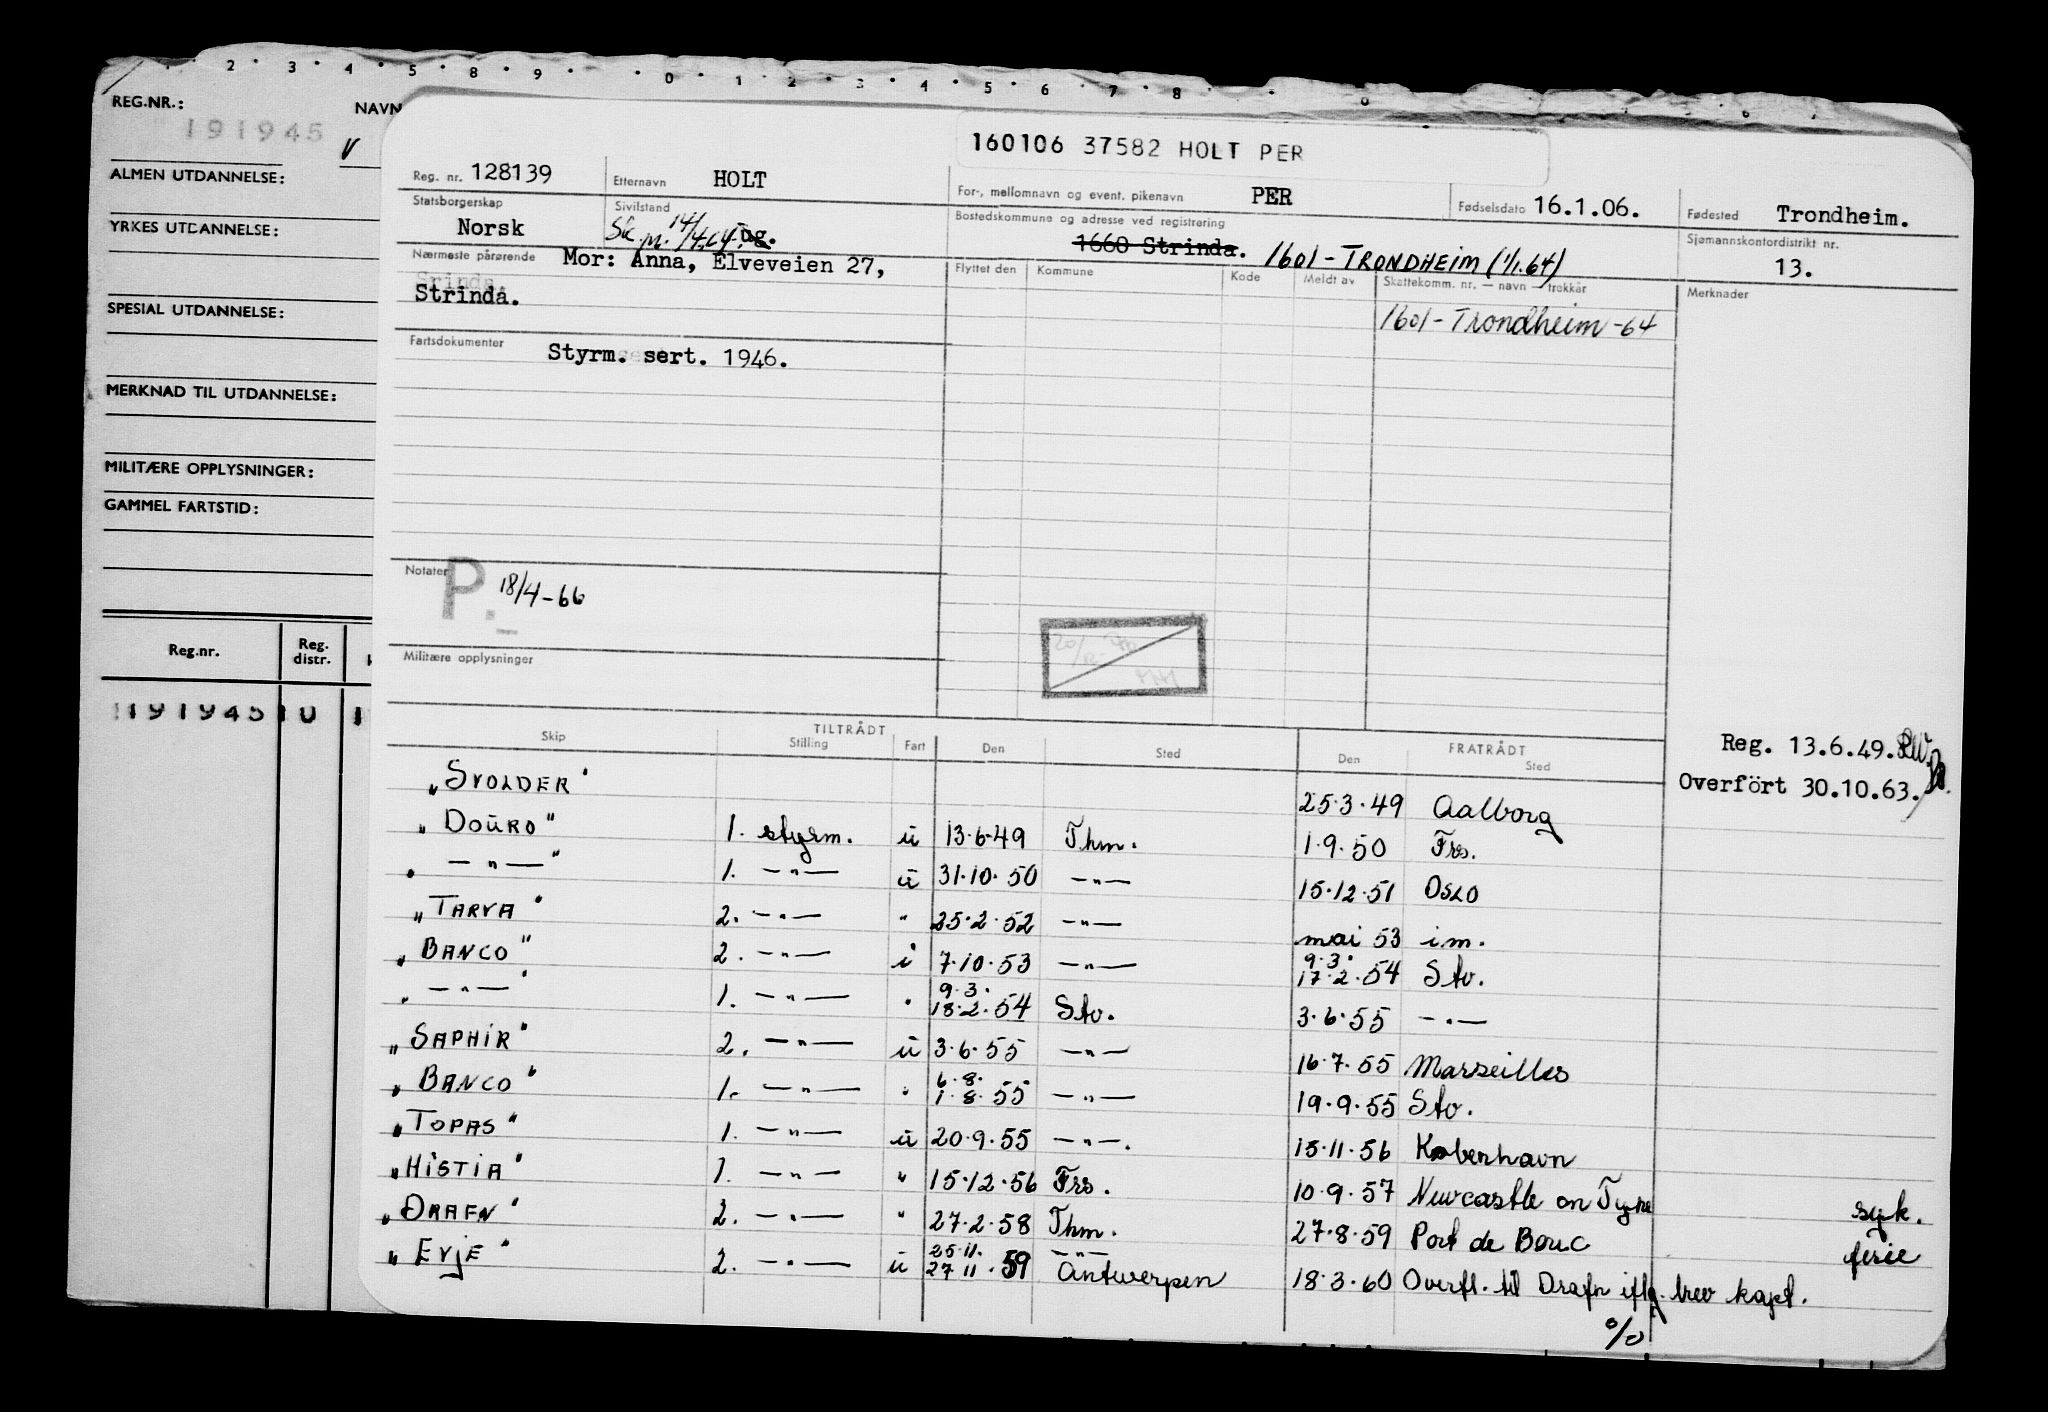 2 · 3 · 4 · 5 · 8 · 9 · · 0 · 1 · 2 · 3 · 4 · 5 · 6 · 7 · 8 ·
REG.NR.: NAVN
191945 V
ALMEN UTDANNELSE:
YRKES UTDANNELSE:
SPESIAL UTDANNELSE:
MERKNAD TIL UTDANNELSE:
MILITÆRE OPPLYSNINGER:
GAMMEL FARTSTID:
Reg.nr. Reg. distr.
191945 0 1
160106 37582 HOLT PER
Reg. nr. 128139 Etternavn HOLT For-, mellomnavn og event. pikenavn PER Fødselsdato 16.1.06. Fødested Trondheim.
Statsborgerskap Norsk Sivilstand ug. 14/4.64 Bostedskommune og adresse ved registrering 1660 Strinda. 1601 - TRONDHEIM (1/1.64) Sjømannskontordistrikt nr. 13.
Nærmeste pårørende Mor: Anna, Elveveien 27, Flyttet den Kommune Kode Meldt av Skattekomm. nr. — navn — trekkår Merknader
Strinda. 1601 - Trondheim - 64
Fartsdokumenter Styrm. sert. 1946.
Notater P. 18/4-66
Militære opplysninger
TILTRÅDT FRATRÅDT
Skip Stilling Fart Den Sted Den Sted
Reg. 13.6.49. RW.
Overfört 30.10.63.
„SVOLDER" 25.3.49 Aalborg
„DOURO" 1. styrm. u 13.6.49 Thm. 1.9.50 Frs.
„ —"— " 1. —"— u 31.10.50 —"— 15.12.51 OSLO
„TARVA" 2. —"— " 25.2.52 —"— mai 53 i.m.
„BANCO" 2. —"— i 7.10.53 —"— 9.3. 17.2.54 Stv.
„ —"— " 1. —"— " 9.3. 18.2.54 Stv. 3.6.55 —"—
„SAPHIR" 2. —"— u 3.6.55 —"— 16.7.55 Marseilles
„BANCO" 1. —"— " 6.8. 1.8.55 —"— 19.9.55 Stv.
„TOPAS" 1. —"— u 20.9.55 —"—. 13.11.56 København
„HISTIA" 1. —"— " 15.12.56 Frs. 10.9.57 Newcastle on Tyne syk.
„DRAFN" 2. —"— " 27.2.58 Thm. 27.8.59 Port de Bouc ferie
„EVJE" 2. —"— u 25.11. 27.11.59 —"— Antwerpen 18.3.60 Overfl. til Drafn iflg. brev kapt.
%